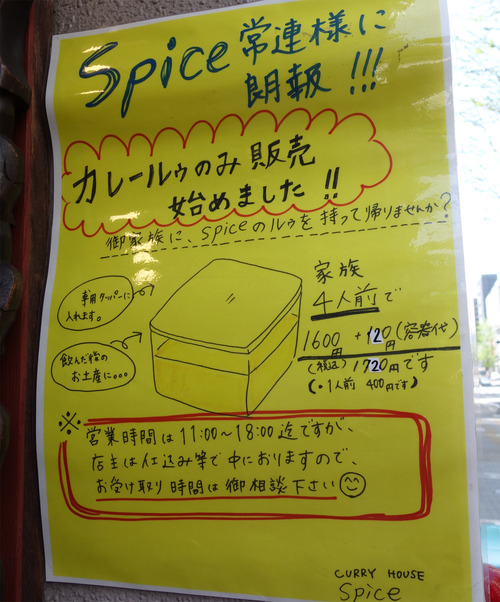 Spice 常連様に
朗報!!!
カレールゥのみ販売
始めました!!
御家族に、spiceのルゥを持って帰りませんか?
専用タッパーに
入れます。
飲んだ後の
お土産に。。。
家族
4人前で
1600円 + 120円(容器代)
(税込) 1720円です
(・1人前 400円です)
※
営業時間は11:00〜18:00迄ですが、
店主は仕込み等で中におりますので、
お受け取り時間は御相談下さい
CURRY HOUSE
Spice